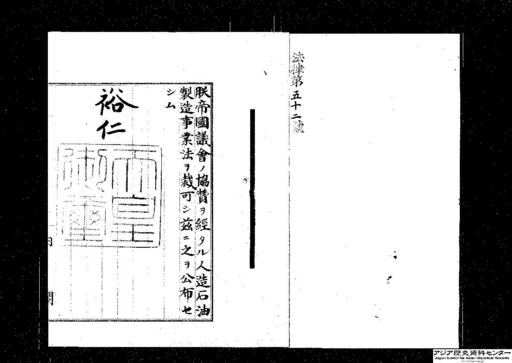 法律第五十二號
朕帝國議會ノ協賛ヲ經タル人造石油
製造事業法ヲ裁可シ茲ニ之ヲ公布セ
シム
裕仁
天皇
御璽
アジア歴史資料センター
Japan Center for Asian Historical Records